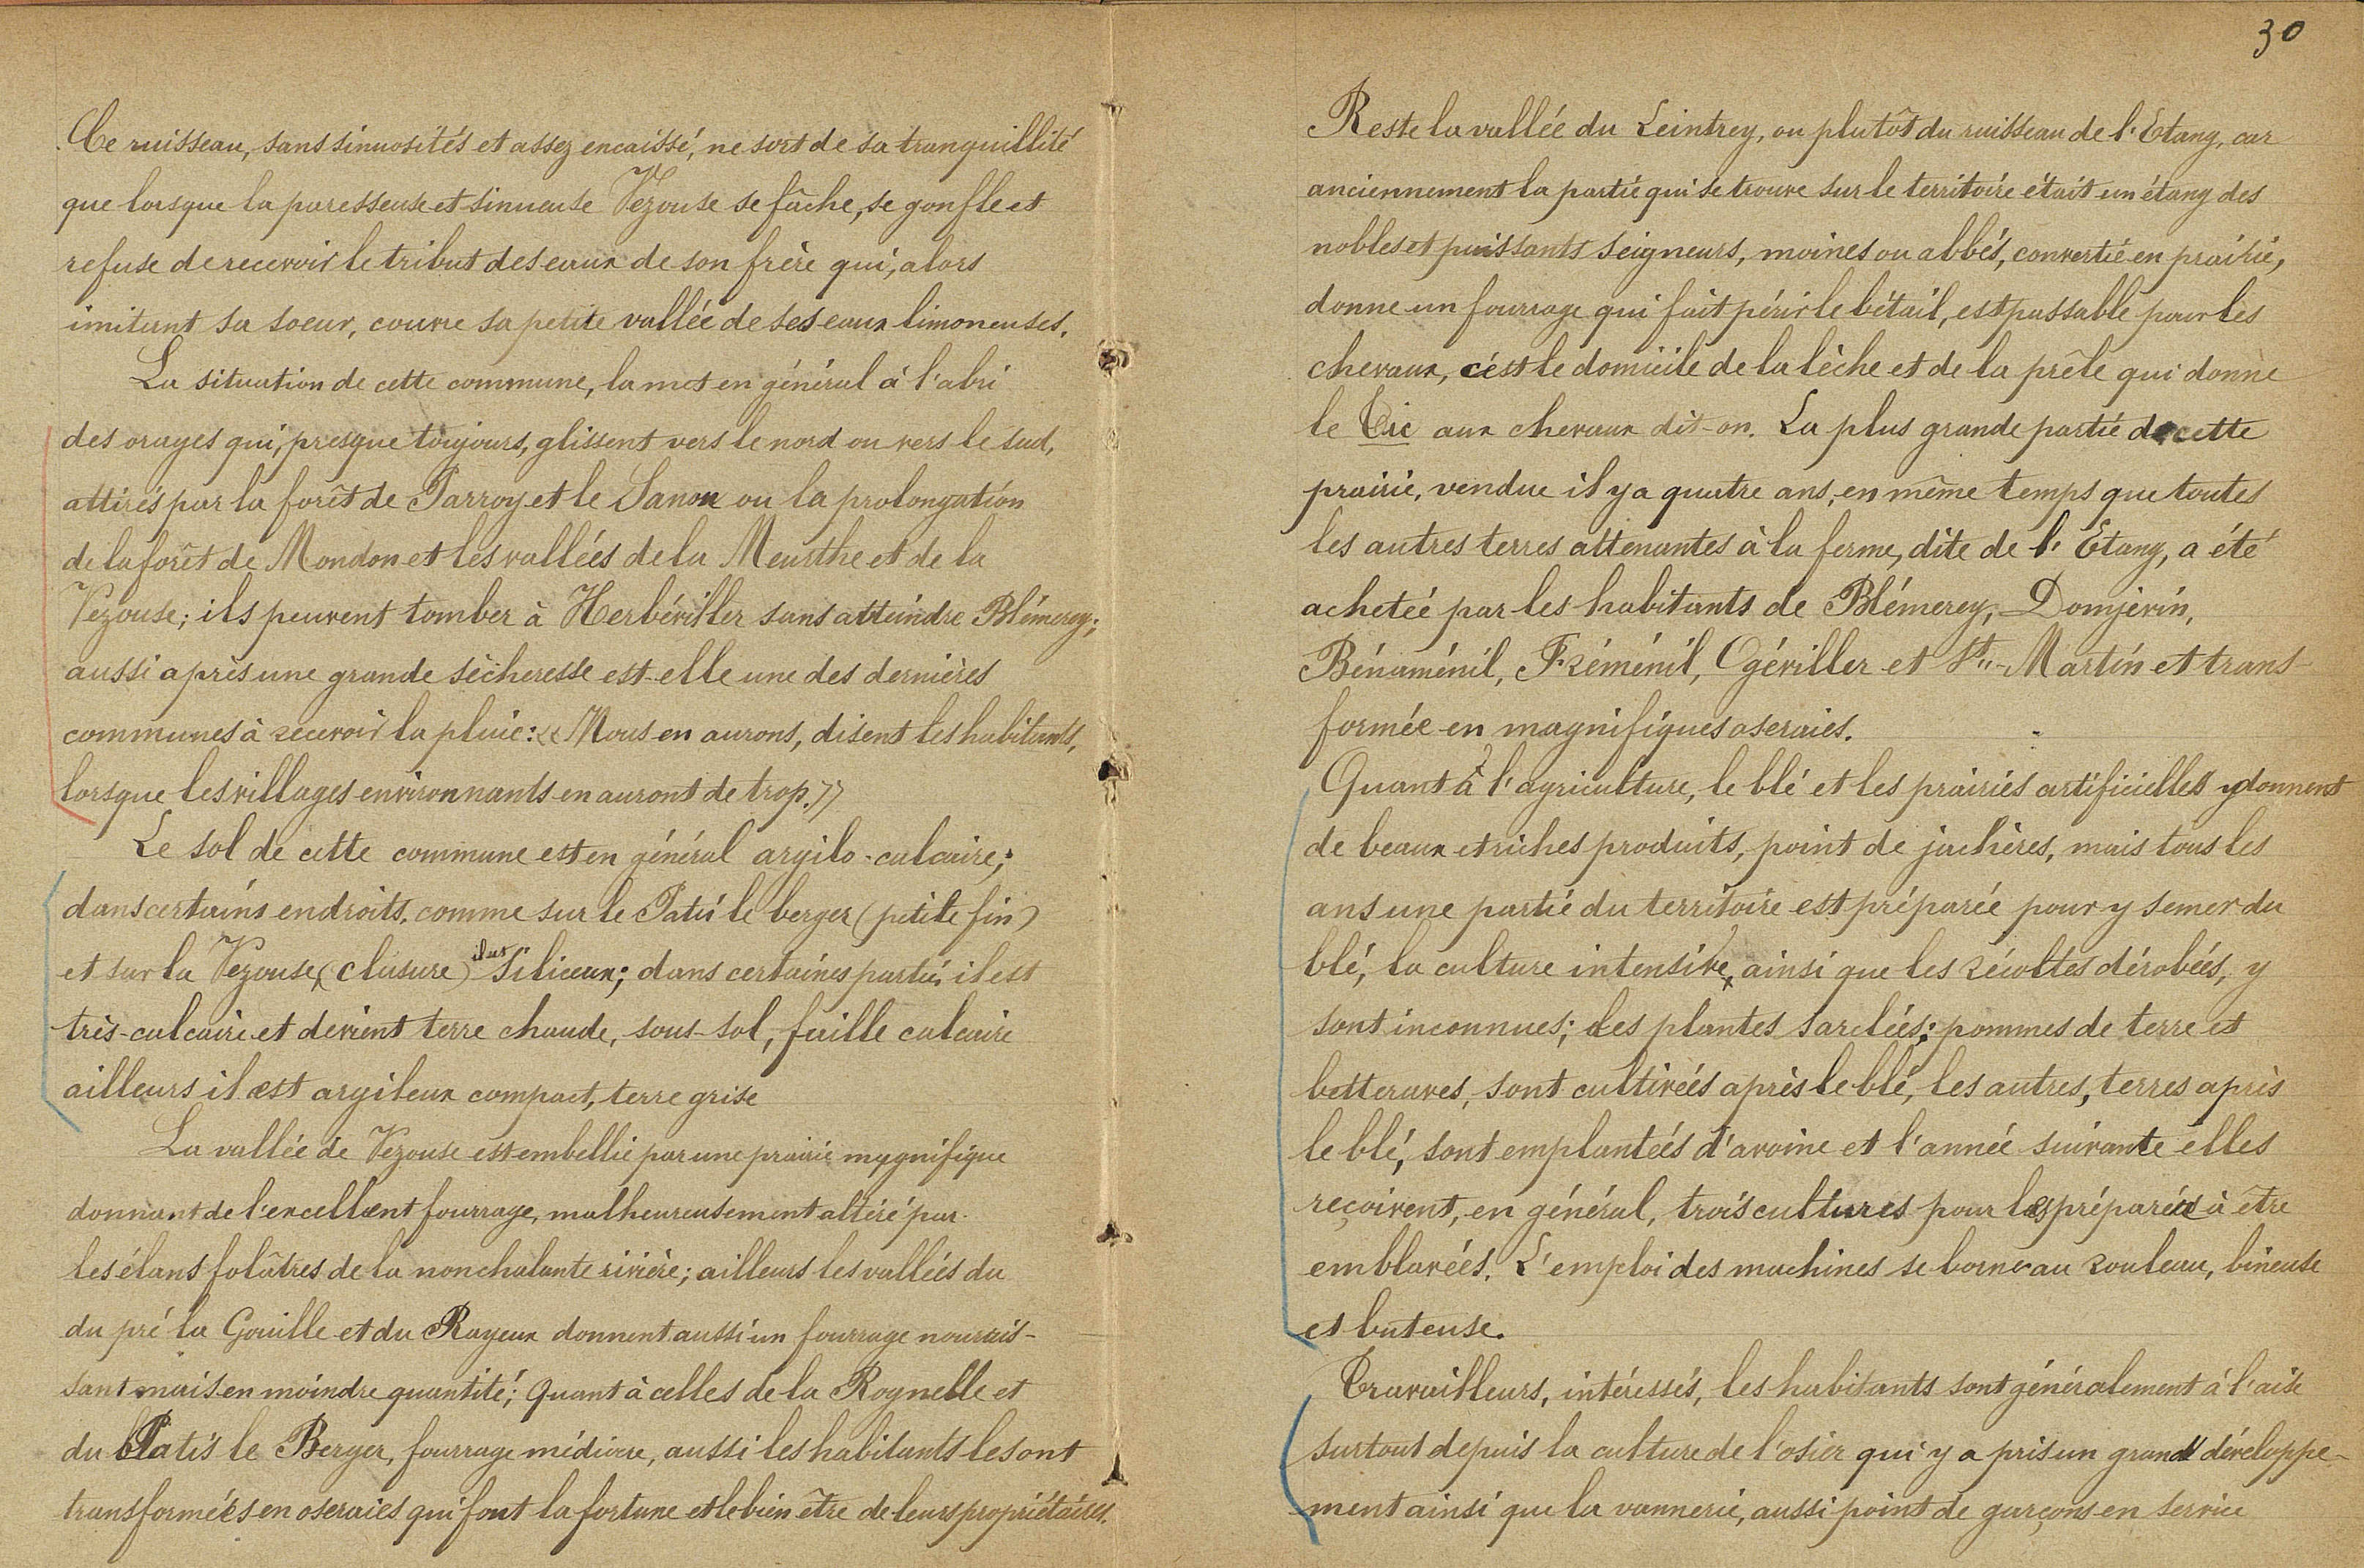 Ce ruisseau, sans sinuosités et assez encaissé, ne sort de sa tranquillité
que lorsque la paresseuse et sinueuse Vezouse se fâche, se gonfle et
refuse de recevoir le tribut des eaux de son frère qui, alors
imitant sa soeur, couvre sa petite vallée de ses eaux limoneuses.
La situation de cette commune, la met en général à l'abri
des orages qui, presque toujours, glissent vers le nord ou vers le sud,
attirés par la forêt de Parroy et le Sanon ou la prolongation
de la forêt de Mondon et les vallées de la Meurthe et de la
Vezouse; ils peuvent tomber à Herbéviller sans atteindre Blémerey;
aussi après une grande sècheresse est-elle une des dernières
communes à recevoir la pluie: «Nous en aurons, disent les habitants,
lorsque les villages environnants en auront de trop.»
Le sol de cette commune est en général argilo-calcaire;
dans certains endroits, comme sur le Patis le berger (petite fin)
et sur la Vezouse (clusure) il est Siliceux; dans certaines partie il est
très-calcaire et devient terre chaude, sous-sol, faille calcaire
ailleurs il est argileux compact, terre grise
La vallée de Vezouse est embellie par une prairie mygnifique
donnant de l'excellent fourrage, malheureusement altéré par
les élans folâtres de la nonchalante rivière; ailleurs les vallées du
du pré la Gouille et du Rayeux donnent aussi un fourrage nourris-
sant mais en moindre quantité; Quant à celles de la Rognelle et
du Patis le Berger, fourrage médiocre, aussi les habitants les ont
transformées en oseraies qui font la fortune et le bien être de leurs propriétaires.
30
Reste la vallée du Leintrey, ou plutôt du ruisseau de l'Etang, car
anciennement la partie qui se trouve sur le territoire était un étang des
nobles et puissants seigneurs, moines ou abbés, convertie en prairie,
donne un fourrage qui fait périr le bétail, est passable pour les
chevaux, c'est le domicile de la lèche et de la prêle qui donne
le Tic aux chevaux dit-on. La plus grande partie de cette
prairie, vendue il y a quatre ans, en même temps que toutes
les autres terres attenantes à la ferme, dite de l'Etang, a été
achetée par les habitants de Blémerey, Domjevin,
Bénaménil, Fréménil, Ogéviller et St.-Martin et trans-
formée en magnifiques oseraies.
Quant à l'agriculture, le blé et les prairies artificielles y donnent
de beaux et riches produits, point de jachères, mais tous les
ans une partie du territoire est préparée pour y semer du
blé, la culture intensive, ainsi que les récoltes dérobées, y
sont inconnues; les plantes sarclées: pommes de terre et
betteraves, sont cultivées après le blé, les autres, terres après
le blé, sont emplantées d'avoine et l'année suivante elles
reçoivent, en général, trois cultures pour les préparées à être
emblavées. L'emploi des machines se borne au rouleau, bineuse
et buteuse.
Travailleurs, intéressés, les habitants sont généralement à l'aise
surtout depuis la culture de l'osier qui y a pris un grand développe-
ment ainsi que la vannerie, aussi point de garçons en service